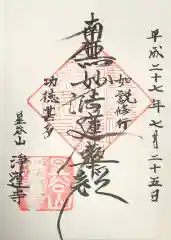 平成二十七年七月二十五日
如説修行
南無妙法蓮華経
功徳甚多
星谷山
浄蓮寺